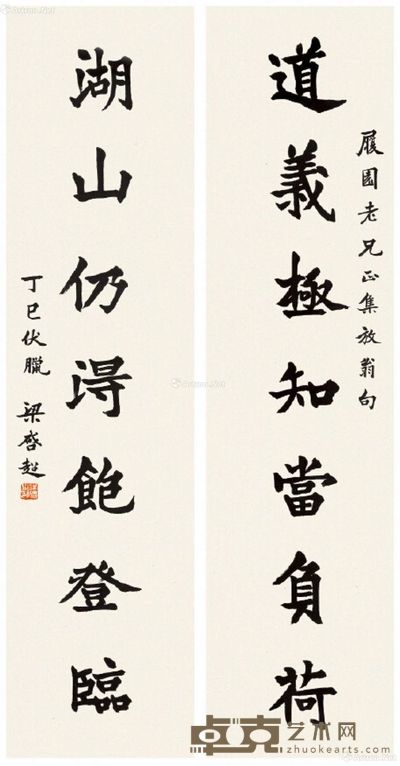 道義極知當負荷
履園老兄正集放翁句
湖山仍得飽登臨
丁巳伏臘 梁啓超
卓克艺术网
zhuokearts.com